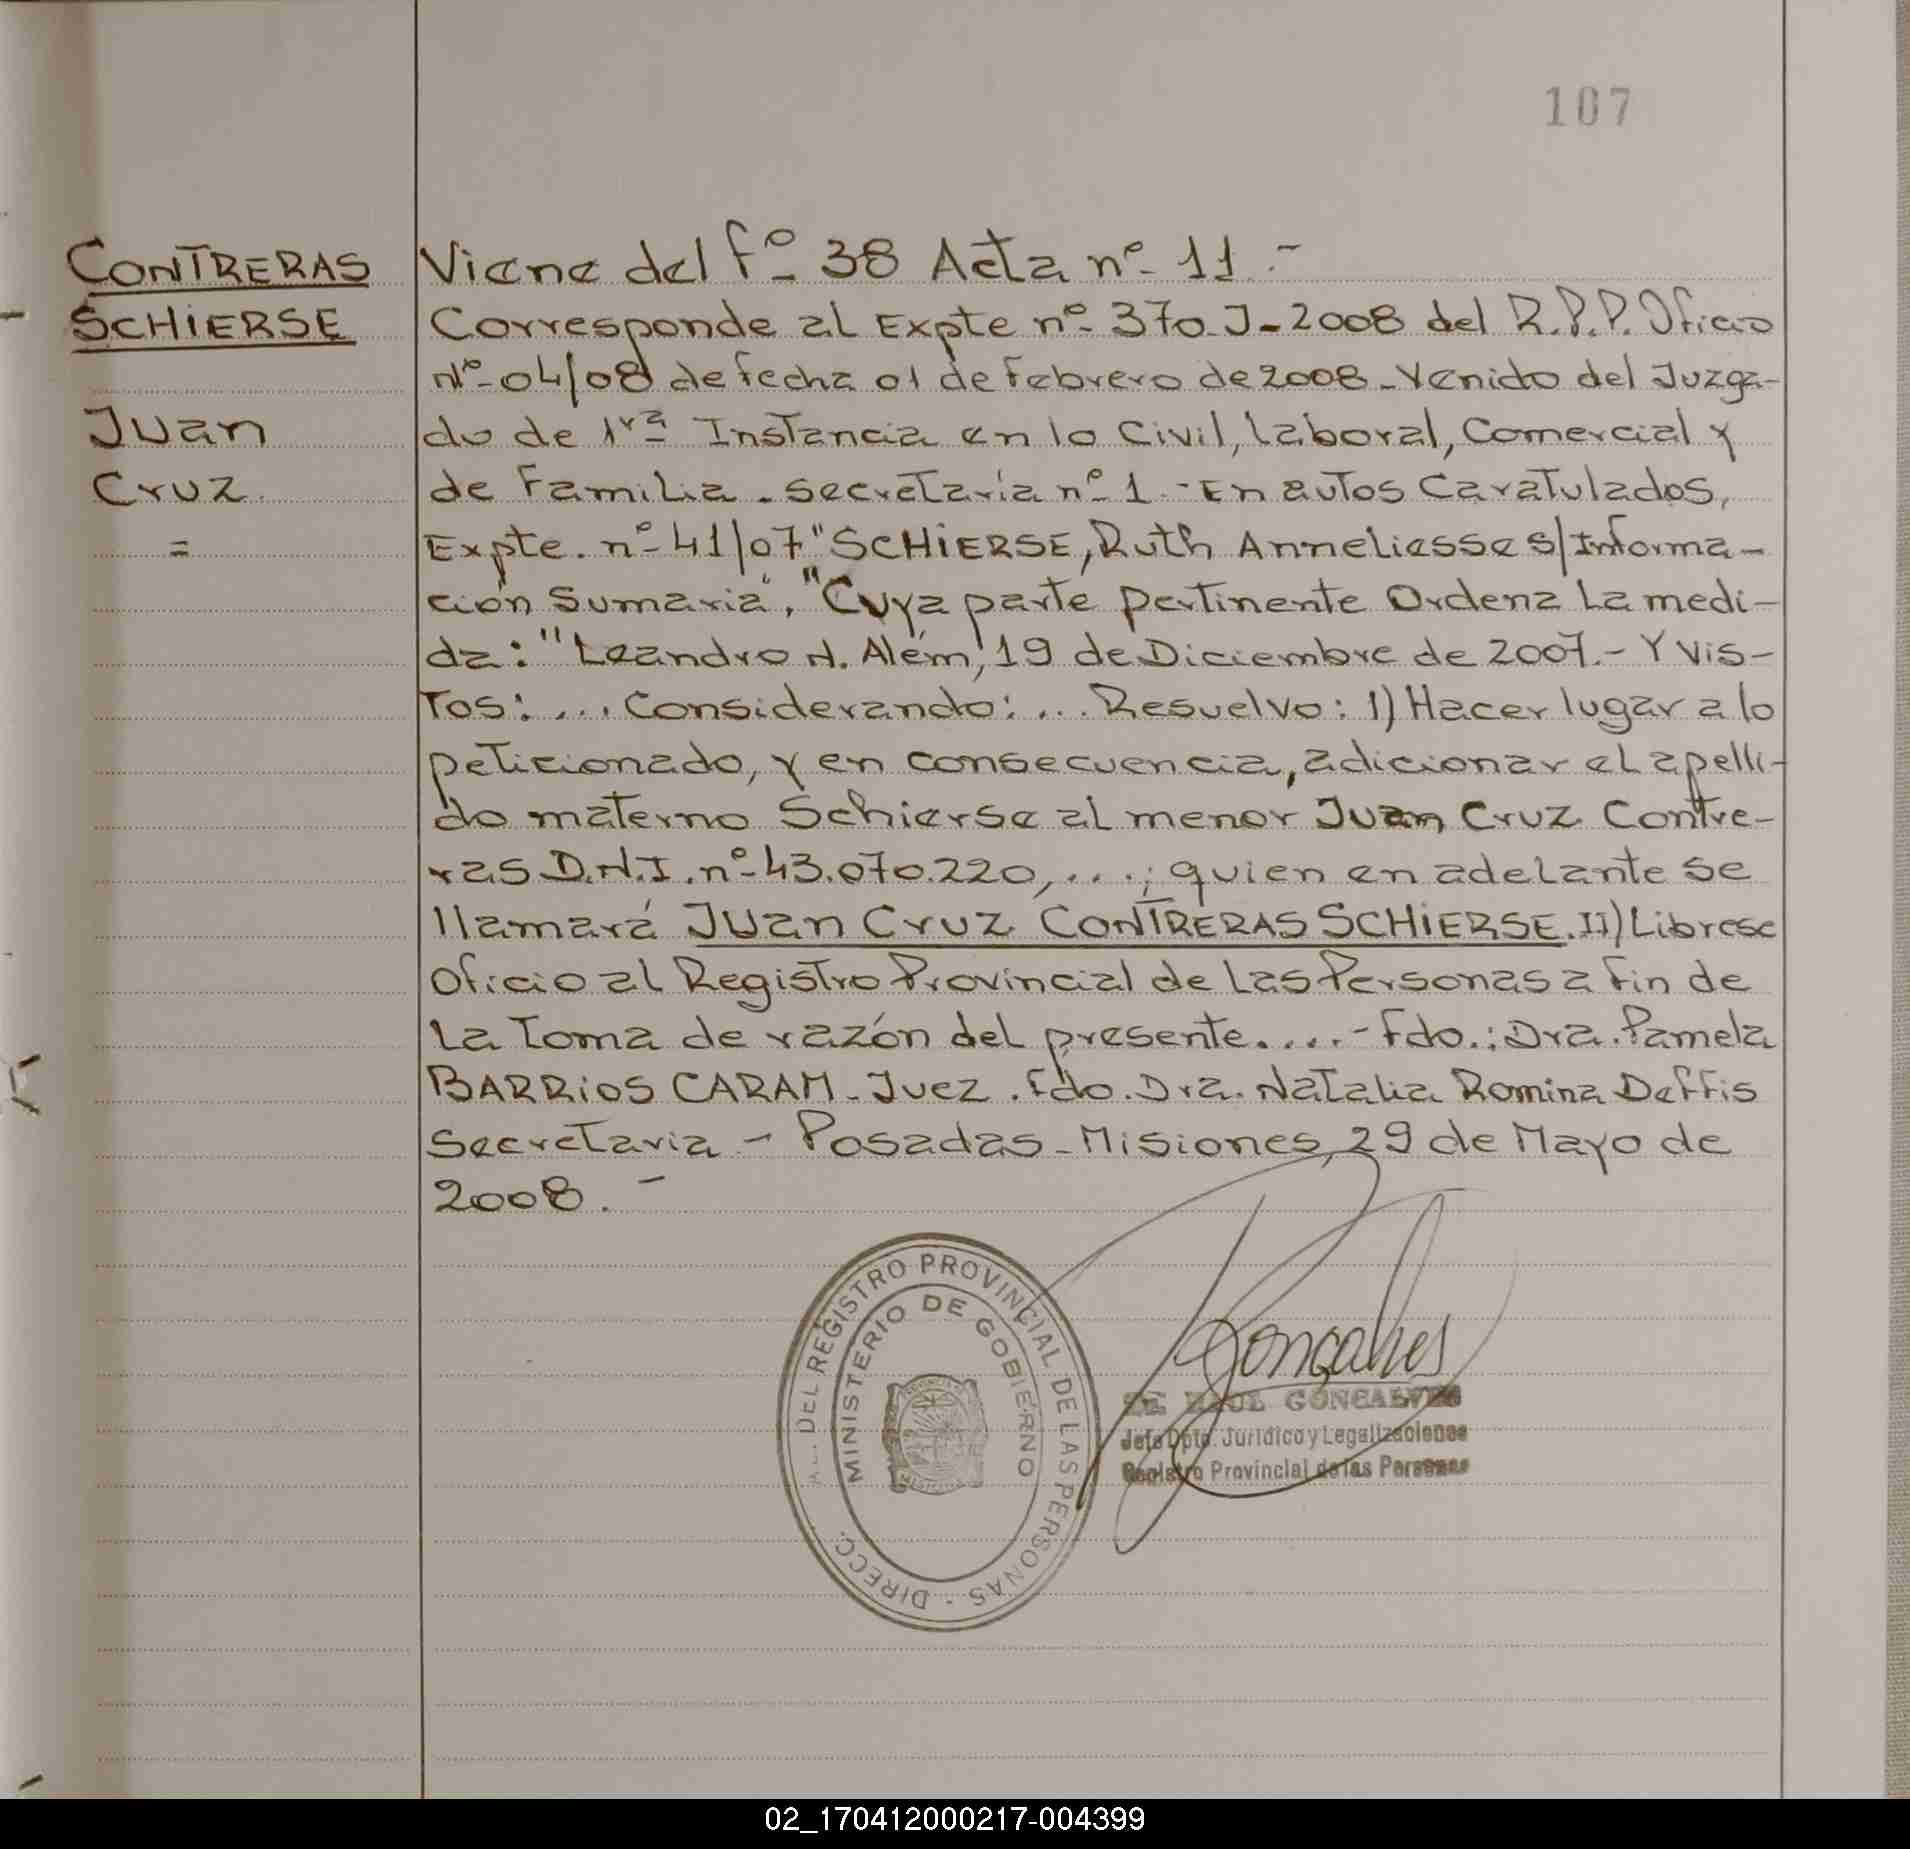 107
CONTRERAS
SCHIERSE
Juan
Cruz
=
Viene del fº 38 Acta nº 11.-
Corresponde al Expte nº 370-J-2008 del R.P.P. Oficio
Nº 04/08 de fecha 01 de Febrero de 2008 - Venido del Juzga-
do de 1ra Instancia en lo Civil, Laboral, Comercial y
de Familia. Secretaría nº 1.- En autos Caratulados,
Expte. nº 41/07 "SCHIERSE, Ruth Anneliesse s/Informa-
ción Sumaria", "Cuya parte pertinente Ordena La medi-
da: "Leandro N. Além, 19 de Diciembre de 2007.- Y Vis-
Tos: ... Considerando: ... Resuelvo: 1) Hacer lugar a lo
peticionado, y en consecuencia, adicionar el apelli-
do materno Schierse al menor Juan Cruz Contre-
ras D.N.I. nº 43.070.220, ...; quien en adelante se
llamará Juan Cruz CONTRERAS SCHIERSE. II) Librese
Oficio al Registro Provincial de Las Personas a Fin de
La Toma de razón del presente.... - Fdo.: Dra. Pamela
BARRIOS CARAM - Juez. Fdo. Dra. Natalia Romina Deffis
Secretaria - Posadas - Misiones, 29 de Mayo de
2008.-
DIRECC. DEL REGISTRO PROVINCIAL DE LAS PERSONAS
MINISTERIO DE GOBIERNO
Gonçalves
RAUL GONCALVES
Jefe Dpto. Jurídico y Legalizaciones
Registro Provincial de las Personas
02_170412000217-004399